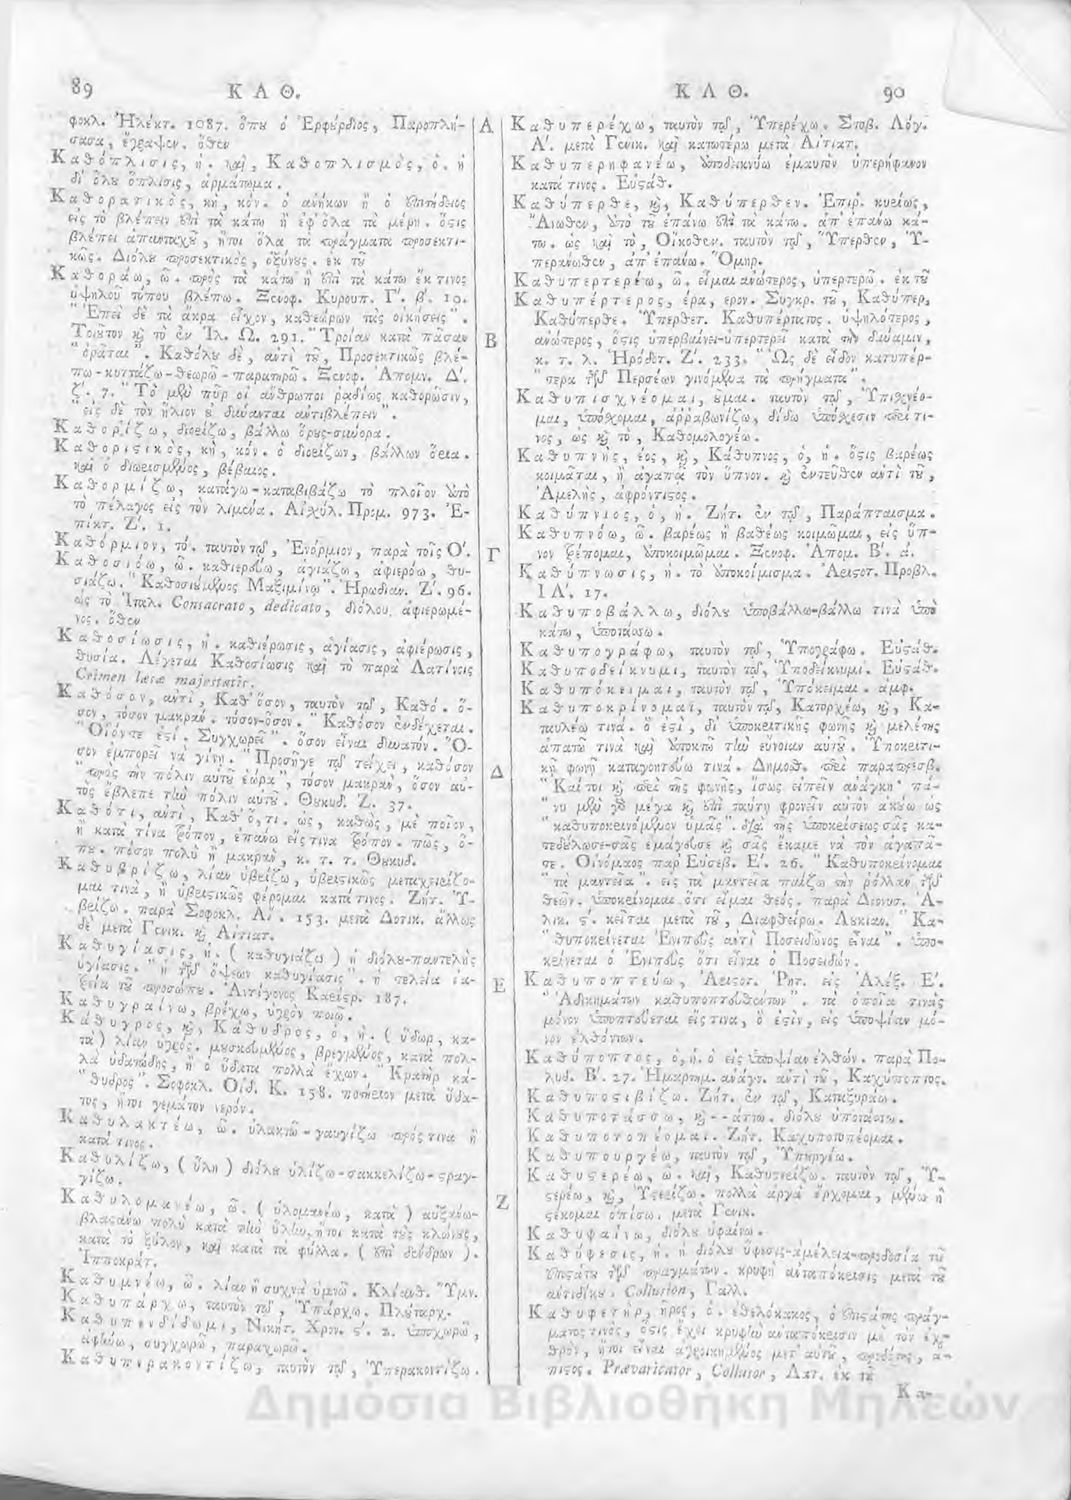 89 ΚΑΘ.
φοκλ. Ἠλέκτ. 1087. ὅπου ὁ Ἐρφύρδιος, Παροπλή-
σασα, ἔγραψεν. ὅθεν
Καθόπλισις, ἡ. καὶ, Καθοπλισμὸς, ὁ. ἡ
δι' ὅλου ὅπλισις, ἁρμάτωμα.
Καθορατικὸς, κὴ, κόν. ὁ ἀνήκων ἢ ὁ ἐπιτήδειος
εἰς τὸ βλέπειν ἐπὶ τὰ κάτω ἢ ἐφ' ὅλα τὰ μέρη. ὅστις
βλέπει ἁπανταχοῦ, ἤτοι ὅλα τὰ πράγματα προσεκτι-
κῶς. Διόλου προσεκτικὸς, ὀξύνους. ἐκ τοῦ
Καθοράω, ῶ. πρὸς τὰ κάτω ἢ ἐπὶ τὰ κάτω ἔκ τινος
ὑψηλοῦ τόπου βλέπω. Ξενοφ. Κυρουπ. Γ'. β'. 10.
"Ἐπεὶ δὲ τὰ ἄκρα εἶχον, καθεώρων τὰς οἰκήσεις".
Τοιοῦτον καὶ τὸ ἐν Ἰλ. Ω. 291. "Τροίαν κατὰ πᾶσαν
"ὁρᾶται". Καθόλου δὲ, ἀντὶ τοῦ, Προσεκτικῶς βλέ-
πω-κυττάζω-θεωρῶ-παρατηρῶ. Ξενοφ. Ἀπομν. Δ'.
ζ'. 7. "Τὸ μὲν πῦρ οἱ ἄνθρωποι ῥᾳδίως καθορῶσιν,
"εἰς δὲ τὸν ἥλιον οὐ δύνανται ἀντιβλέπειν".
Καθορίζω, διορίζω, βάλλω ὅρους-σύνορα.
Καθοριστικὸς, κὴ, κόν. ὁ διορίζων, βάλλων ὅρια.
καὶ ὁ διωρισμένος, βέβαιος.
Καθορμίζω, κατάγω-καταβιβάζω τὸ πλοῖον ἀπὸ
τὸ πέλαγος εἰς τὸν λιμένα. Αἰσχύλ. Προμ. 973. Ἐ-
πίκτ. Ζ'. 1.
Καθόρμιον, τό. ταυτὸν τῷ, Ἐνόρμιον, παρὰ τοῖς Ο'.
Καθοσιόω, ῶ. καθιερόω, ἁγιάζω, ἀφιερόω, θυ-
σιάζω. "Καθοσιούμενος Μαξιμίνῳ". Ἡρωδιαν. Ζ'. 96.
ὡς τὸ Ἰταλ. Consacrato, dedicato, διόλου ἀφιερωμέ-
νος. ὅθεν
Καθοσίωσις, ἡ. καθιέρωσις, ἁγίασις, ἀφιέρωσις,
θυσία. Λέγεται Καθοσίωσις καὶ τὸ παρὰ Λατίνοις
Crimen læsæ majestatis.
Καθόσον, ἀντὶ, Καθ' ὅσον, ταυτὸν τῷ, Καθό. ὅ-
σον, τόσον μακρὰν. τόσον-ὅσον. "Καθόσον ἐνδέχεται.
"Οἷόν τε ἐστί. Συγχωρεῖ". ὅσον εἶναι δυνατὸν. Ὅ-
σον ἐμπορεῖ νὰ γίνῃ. "Προσῆγε τῷ τείχει, καθόσον
"πρὸς τὴν πόλιν αὐτοῦ ἑώρα", τόσον μακρὰν, ὅσον αὐ-
τὸς ἔβλεπε τὴν πόλιν αὐτοῦ. Θουκυδ. Ζ. 37.
Καθότι, ἀντὶ, Καθ' ὅ,τι. ὡς, καθὼς, μὲ ποῖον,
ἢ κατὰ τίνα τρόπον, ἐπάνω εἴς τινα τρόπον. πῶς, ὅ-
που. πόσον πολὺ ἢ μακρὰν, κ. τ. τ. Θουκυδ.
Καθυβρίζω, λίαν ὑβρίζω, ὑβριστικῶς μεταχειρίζο-
μαι τινὰ, ἢ ὑβριστικῶς φέρομαι κατά τινος. Ζήτ. Ὑ-
βρίζω. παρὰ Σοφοκλ. Αἴ. 153. μετὰ Δοτικ. ἄλλως
δὲ μετὰ Γενικ. καὶ Αἰτιατ.
Καθυγίασις, ἡ. (καθυγιάζω) ἡ διόλου-παντελὴς
ὑγίασις. "ἡ τῶν ὄψεων καθυγίασις". ἡ τελεία ἰα-
τρεία τοῦ προσώπου. Ἀντίγονος Καρύστ. 187.
Καθυγραίνω, βρέχω, ὑγρὸν ποιῶ.
Κάθυγρος, καὶ, Κάθυδρος, ὁ, ἡ. (ὕδωρ, κα-
τὰ) λίαν ὑγρός. μουσκευμένος, βρεγμένος, κατὰ πολ-
λὰ ὑδατώδης, ἢ ὁ ὕδατα πολλὰ ἔχων. "Κρατὴρ κά-
"θυδρος". Σοφοκλ. Οἰδ. Κ. 158. ποτήριον μετὰ ὕδα-
τος, ἤτοι γεμάτον νερόν.
Καθυλακτέω, ῶ. ὑλακτῶ-γαυγίζω πρός τινα ἢ
κατά τινος.
Καθυλίζω, (ὕλη) διόλου ὑλίζω-σακκελίζω-στραγ-
γίζω.
Καθυλομανέω, ῶ. (ὑλομανέω, κατὰ) αὐξάνω-
βλαστάνω πολὺ κατὰ τὴν ὕλην, ἤτοι κατὰ τοὺς κλώνους,
κατὰ τὸ ξύλον, καὶ κατὰ τὰ φύλλα. (ἐπὶ δένδρων).
Ἱπποκράτ.
Καθυμνέω, ῶ. λίαν ἢ συχνὰ ὑμνῶ. Κλέανθ. Ὕμν.
Καθυπάρχω, ταυτὸν τῷ, Ὑπάρχω. Πλούταρχ.
Καθυπενδίδωμι, Νικήτ. Χρον. ς'. 2. ὑποχωρῶ,
ἀφίνω, συγχωρῶ, παραχωρῶ.
Καθυπερακοντίζω, ταυτὸν τῷ, Ὑπερακοντίζω.
Α
Β
Γ
Δ
Ε
Ζ
ΚΑΘ. 90
Καθυπερέχω, ταυτὸν τῷ, Ὑπερέχω. Στοβ. Λόγ.
Α'. μετὰ Γενικ. καὶ κατωτέρω μετὰ Αἰτιατ.
Καθυπερηφανέω, ἀποδεικνύω ἐμαυτὸν ὑπερήφανον
κατά τινος. Εὐστάθ.
Καθύπερθε, καὶ, Καθύπερθεν. Ἐπιρ. κυρίως,
Ἄνωθεν, ἀπὸ τοῦ ἐπάνω ἐπὶ τὰ κάτω. ἀπ' ἐπάνω κά-
τω. ὡς καὶ τὸ, Οἴκοθεν. ταυτὸν τῷ, Ὕπερθεν, Ὑ-
περάνωθεν, ἀπ' ἐπάνω. Ὅμηρ.
Καθυπερτερέω, ῶ. εἶμαι ἀνώτερος, ὑπερτερῶ. ἐκ τοῦ
Καθυπέρτερος, έρα, ερον. Συγκρ. τοῦ, Καθύπερ,
Καθύπερθε. Ὑπερθετ. Καθυπέρτατος. ὑψηλότερος,
ἀνώτερος, ὅστις ὑπερβαίνει-ὑπερτερεῖ κατὰ τὴν δύναμιν,
κ. τ. λ. Ἡρόδοτ. Ζ'. 233. "Ὡς δὲ εἶδον κατυπέρ-
"τερα τῶν Περσέων γινόμενα τὰ πρήγματα".
Καθυπισχνέομαι, οῦμαι. ταυτὸν τῷ, Ὑπισχνέο-
μαι, ὑπόσχομαι, ἀρραβωνίζω, δίδω ὑπόσχεσιν περί τι-
νος, ὡς καὶ τὸ, Καθομολογέω.
Καθυπνὴς, έος, καὶ, Κάθυπνος, ὁ, ἡ. ὅστις βαρέως
κοιμᾶται, ἢ ἀγαπᾷ τὸν ὕπνον. καὶ ἐντεῦθεν ἀντὶ τοῦ,
Ἀμελὴς, ἀφρόντιστος.
Καθύπνιος, ὁ, ἡ. Ζήτ. ἐν τῷ, Παράπταισμα.
Καθυπνόω, ῶ. βαρέως ἢ βαθέως κοιμῶμαι, εἰς ὕπ-
νον τρέπομαι, ἀποκοιμῶμαι. Ξενοφ. Ἀπομ. Β'. ά.
Καθύπνωσις, ἡ. τὸ ἀποκοίμισμα. Ἀριστοτ. Προβλ.
ΙΛ'. 17.
Καθυποβάλλω, διόλου ὑποβάλλω-βάλλω τινὰ ὑπὸ
κάτω, ὑποτάσσω.
Καθυπογράφω, ταυτὸν τῷ, Ὑπογράφω. Εὐστάθ.
Καθυποδείκνυμι, ταυτὸν τῷ, Ὑποδείκνυμι. Εὐστάθ.
Καθυπόκειμαι, ταυτὸν τῷ, Ὑπόκειμαι. ἀμφ.
Καθυποκρίνομαι, ταυτὸν τῷ, Κατορχέω, καὶ, Κα-
ταυλέω τινά. ὅ ἐστι, δι' ὑποκριτικῆς φωνῆς καὶ μελέτης
ἀπατῶ τινα καὶ ἀποκτῶ τὴν εὔνοιαν αὐτοῦ. Ὑποκριτι-
κῇ φωνῇ καταγοητεύω τινά. Δημοσθ. περὶ παραπρεσβ.
"Καίτοι καὶ περὶ τῆς φωνῆς, ἴσως εἰπεῖν ἀνάγκη πά-
"νυ μὲν γὰρ μέγα καὶ ἐπὶ ταύτῃ φρονεῖν αὐτὸν ἀκούω ὡς
"καθυποκρινόμενον ὑμᾶς". διὰ τῆς ὑποκρίσεως σᾶς κα-
τεδούλωσε-σᾶς ἐμάγευσε καὶ σᾶς ἔκαμε νὰ τὸν ἀγαπᾶ-
τε. Οἰνόμαος παρ' Εὐσεβ. Ε'. 26. "Καθυποκρίνομαι
"τὰ μαντεῖα". εἰς τὰ μαντεῖα παίζω τὴν ῥόλλαν τῶν
θεῶν. ὑποκρίνομαι ὅτι εἶμαι θεός. παρὰ Διονυσ. Ἁ-
λικ. ς'. κεῖται μετὰ τοῦ, Διαφθείρω. Λουκιαν. "Κα-
"θυποκρίνεται Ἐνιπεὺς ἀντὶ Ποσειδῶνος εἶναι". ὑπο-
κρίνεται ὁ Ἐνιπεὺς ὅτι εἶναι ὁ Ποσειδῶν.
Καθυποπτεύω, Ἀριστοτ. Ῥητ. εἰς Ἀλέξ. Ε'.
"Ἀδικημάτων καθυποπτευθέντων". τὰ ὁποῖα τινὰς
μόνον ὑποπτεύεται εἴς τινα, ὅ ἐστιν, εἰς ὑποψίαν μό-
νον ἐλθόντων.
Καθύποπτος, ὁ, ἡ. ὁ εἰς ὑποψίαν ἐλθών. παρὰ Πο-
λυδ. Β'. 27. Ἡμαρτημ. ἀνάγν. ἀντὶ τοῦ, Καχύποπτος.
Καθυποστιβίζω. Ζήτ. ἐν τῷ, Καταξυράω.
Καθυποτάσσω, καὶ--άττω. διόλου ὑποτάσσω.
Καθυποτοπέομαι. Ζήτ. Καχυποτοπέομαι.
Καθυπουργέω, ταυτὸν τῷ, Ὑπουργέω.
Καθυστερέω, ῶ. καὶ, Καθυστερίζω. ταυτὸν τῷ, Ὑ-
στερέω, καὶ, Ὑστερίζω. πολλὰ ἀργὰ ἔρχομαι, μένω ἢ
στέκομαι ὀπίσω. μετὰ Γενικ.
Καθυφαίνω, διόλου ὑφαίνω.
Καθύφεσις, ἡ. ἡ διόλου ὕφεσις-ἀμέλεια-προδοσία τοῦ
ἐπιστάτου τῶν πραγμάτων. κρυφὴ ἀνταπόκρισις μετὰ τοῦ
ἀντιδίκου. Collusion, Γαλλ.
Καθυφετὴρ, ῆρος, ὁ. ἐθελόκακος, ὁ ἐπιστάτης πράγ-
ματός τινος, ὅστις ἔχει κρυφίαν ἀνταπόκρισιν μὲ τὸν ἐχ-
θρὸν, ἤτοι εἶναι μετ' αὐτοῦ, προδότης, ἄ-
πιστος. Prævaricator, Collusor, Λατ. ἐκ τοῦ
Κα-
Δημόσια Βιβλιοθήκη Μηλεών